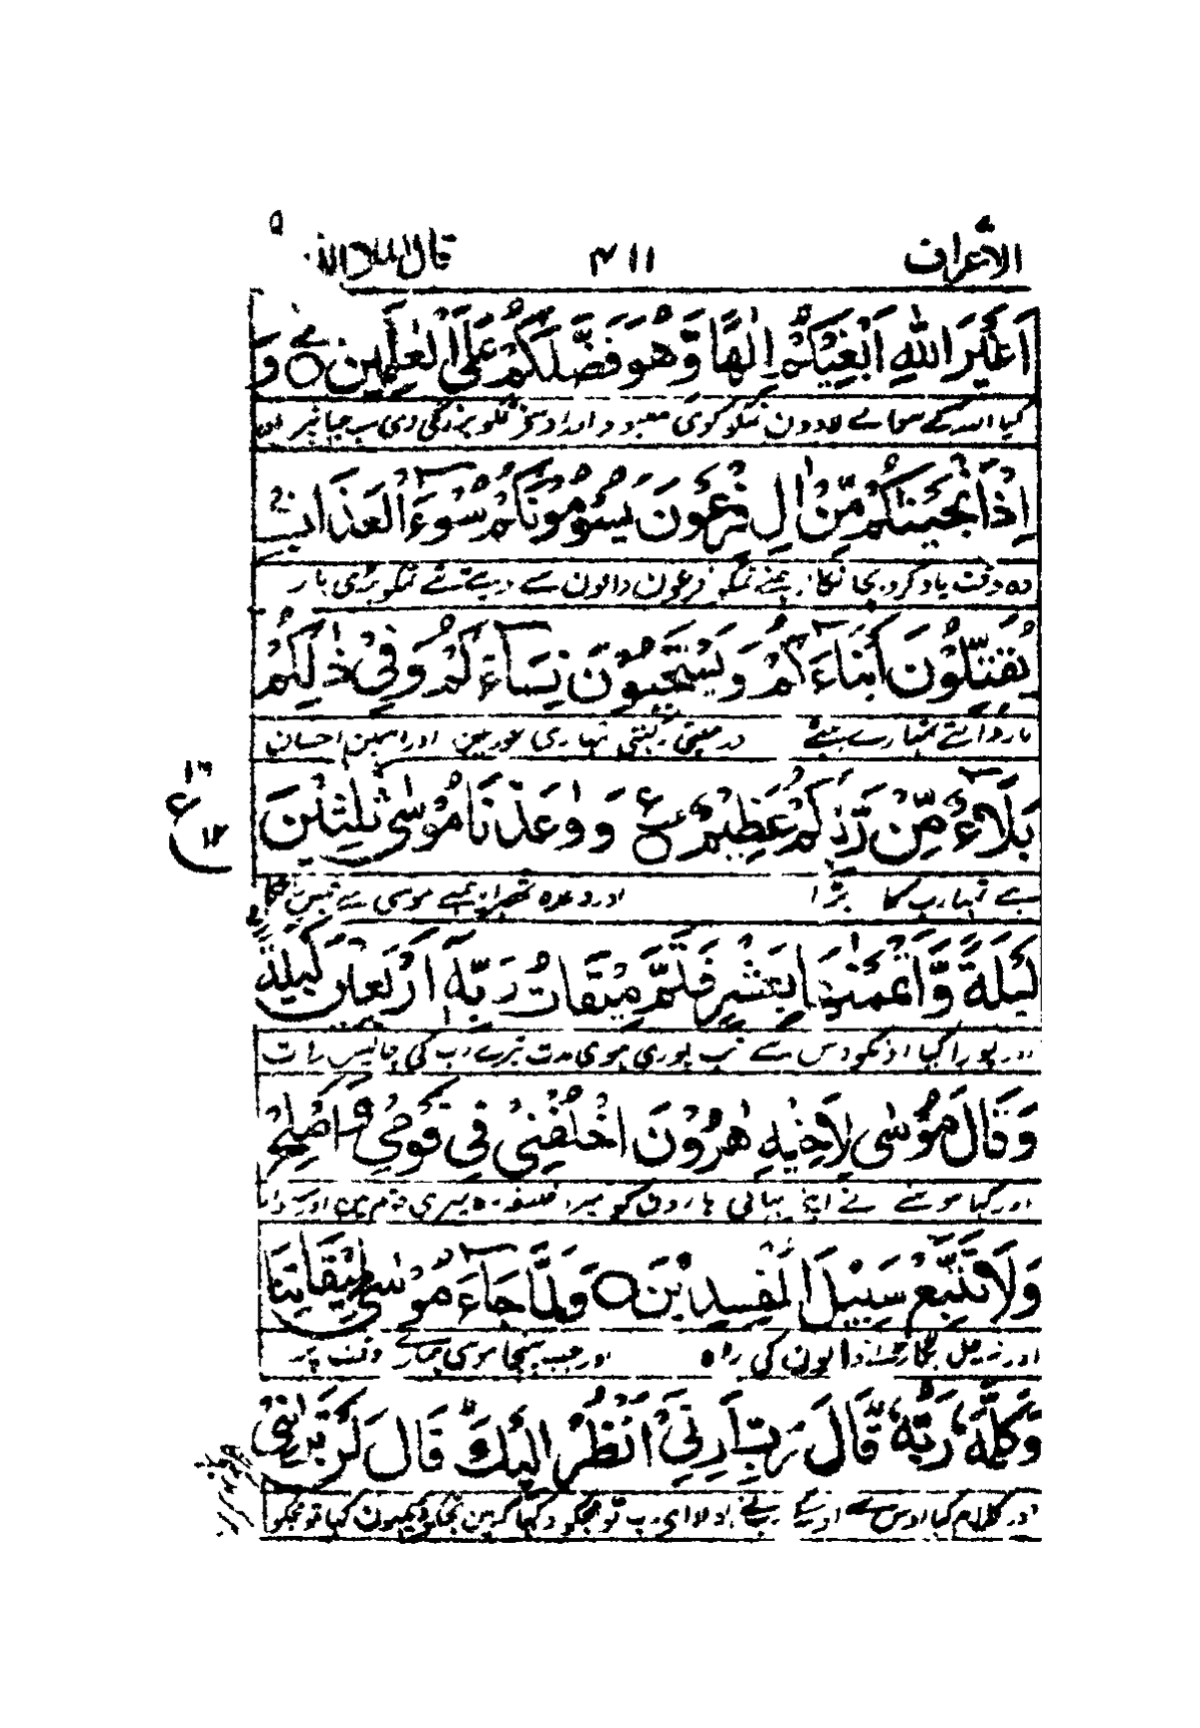 الاعراف ۳۱۱ قال الملا الذين ۹
اَغَيْرَ اللّٰهِ اَبْغِيْكُمْ اِلٰهًا وَّهُوَ فَضَّلَكُمْ عَلَى الْعٰلَمِيْنَ ○ وَ
کیا اللہ کے سوائے لا دون تمکو کوی معبود اور اوسنے تمکو بزرگی دی سب جہانپر اور
اِذْ اَنْجَيْنٰكُمْ مِّنْ اٰلِ فِرْعَوْنَ يَسُوْمُوْنَكُمْ سُوْٓءَ الْعَذَابِ
وہ وقت یاد کرو بچا نکالا ہمنے تمکو فرعون والون سے دیتے تھے تمکو بڑی مار
يُقَتِّلُوْنَ اَبْنَآءَكُمْ وَيَسْتَحْيُوْنَ نِسَآءَكُمْ وَفِيْ ذٰلِكُمْ
مار ڈالتے تمہارے بیٹے اور جیتی رکھتی تمہاری عورتین اور اسمین احسان
بَلَآءٌ مِّنْ رَّبِّكُمْ عَظِيْمٌ ○ ع وَوٰعَدْنَا مُوْسٰى ثَلٰثِيْنَ
ہے تمہارے رب کا بڑا اور وعدہ ٹھرایا ہمنے موسی سے تیس
لَيْلَةً وَّاَتْمَمْنٰهَا بِعَشْرٍ فَتَمَّ مِيْقَاتُ رَبِّهٖٓ اَرْبَعِيْنَ لَيْلَةً
اور پورا کیا اونکو دس سے تب پوری ہوی مدت تیرے رب کی چالیس رات
وَقَالَ مُوْسٰى لِاَخِيْهِ هٰرُوْنَ اخْلُفْنِيْ فِيْ قَوْمِيْ وَاَصْلِحْ
اور کہا موسی نے اپنے بھائی ہارون کو میرا خلیفہ رہ میری قوم مین اور
وَلَا تَتَّبِعْ سَبِيْلَ الْمُفْسِدِيْنَ ○ وَلَمَّا جَآءَ مُوْسٰى لِمِيْقَاتِنَا
اور نہ چل بگاڑنے والون کی راہ اور جب پہنچا موسی ہمارے وقت پر
وَكَلَّمَهٗ رَبُّهٗ قَالَ رَبِّ اَرِنِيْٓ اَنْظُرْ اِلَيْكَ قَالَ لَنْ تَرٰىنِيْ
اور کلام کیا اوس سے اوسکے رب نے بولا ای رب تو مجکو دکھا کہ مین تجکو دیکھون کہا تو مجکو